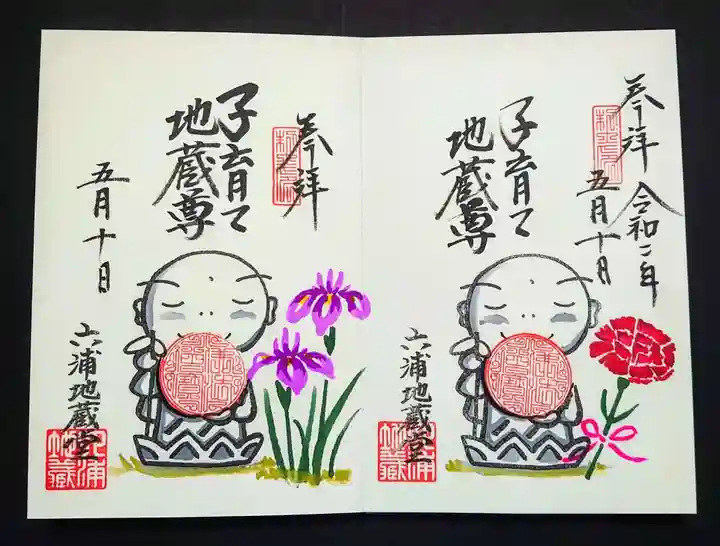 奉拝
令和二年
五月十日
子育て
地蔵尊
六浦地蔵堂
奉拝
子育て
地蔵尊
五月十日
六浦地蔵堂